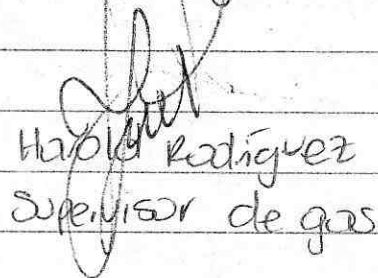 Harold Rodríguez
Supervisor de gas